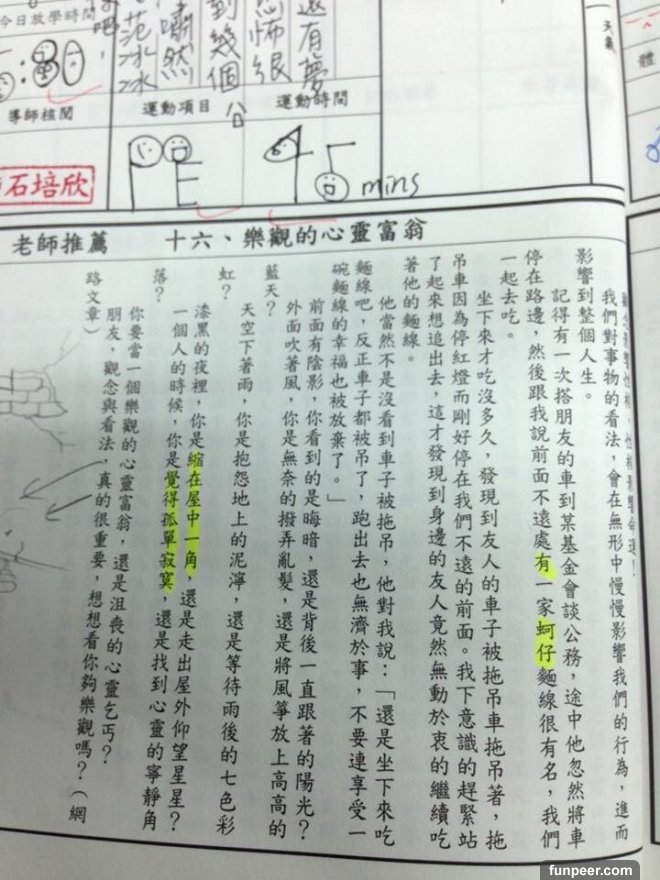 今日放學時間
天氣
體
有夢
恐怖很
到幾個公
嘯然
花冰冰
:30
導師核閱
運動項目
運動時間
石培欣
PE
45 mins
老師推薦
十六、樂觀的心靈富翁
影響性格,性格影響命運!
我們對事物的看法,會在無形中慢慢影響我們的行為,進而
影響到整個人生。
記得有一次搭朋友的車到某基金會談公務,途中他忽然將車
停在路邊,然後跟我說前面不遠處有一家蚵仔麵線很有名,我們
一起去吃。
坐下來才吃沒多久,發現到友人的車子被拖吊車拖吊著,拖
吊車因為停紅燈而剛好停在我們不遠的前面。我下意識的趕緊站
了起來想追出去,這才發現到身邊的友人竟然無動於衷的繼續吃
著他的麵線。
他當然不是沒看到車子被拖吊,他對我說:「還是坐下來吃
麵線吧,反正車子都被吊了,跑出去也無濟於事,不要連享受一
碗麵線的幸福也被放棄了。」
前面有陰影,你看到的是晦暗,還是背後一直跟著的陽光?
外面吹著風,你是無奈的撥弄亂髮,還是將風箏放上高高的
藍天?
天空下著雨,你是抱怨地上的泥濘,還是等待雨後的七色彩
虹?
漆黑的夜裡,你是縮在屋中一角,還是走出屋外仰望星星?
一個人的時候,你是覺得孤單寂寞,還是找到心靈的寧靜角
落?
你要當一個樂觀的心靈富翁,還是沮喪的心靈乞丐?
朋友,觀念與看法,真的很重要,想想看你夠樂觀嗎?(網
路文章)
funpeer.com